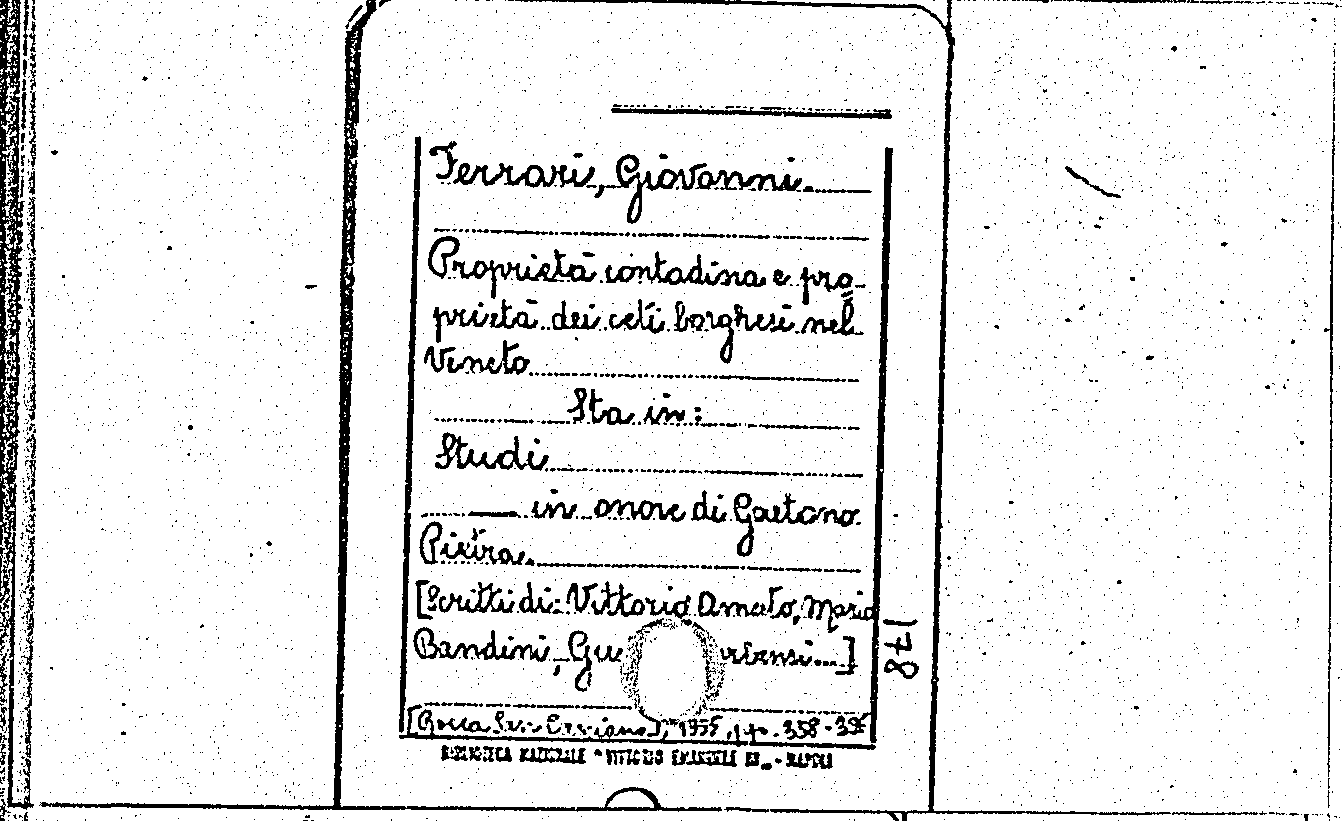 Ferrari, Giovanni.
Proprietà contadina e pro-
prietà dei ceti borghesi nel
Veneto
Sta in:
Studi
— in onore di Gaetano
Pietra.
[Scritti di: Vittorio Amato, Mario
Bandini, Gu
[Rocca San Casciano], 1955, pp. 358-
BIBLIOTECA NAZIONALE "VITTORIO EMANUELE III" - NAPOLI
178